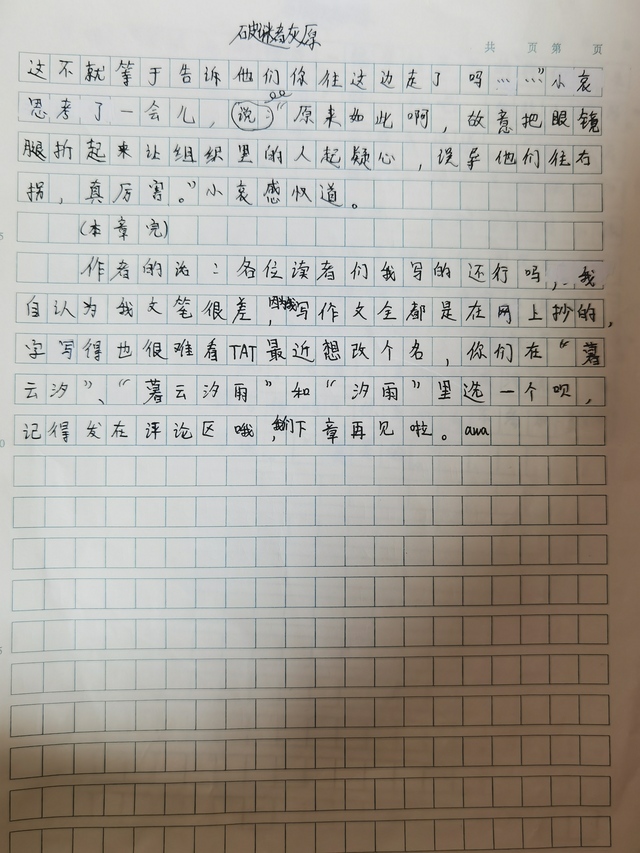 破谜者灰原
共 页 第 页
这不就等于告诉他们你往这边走了吗……”小哀
思考了一会儿，说：“原来如此啊，故意把眼镜
腿折起来让组织里的人起疑心，误导他们往右
拐，真厉害。”小哀感叹道。
（本章完）
作者的话：各位读者们我写的还行吗，我
自认为我文笔很差，因为我写作文全都是在网上抄的，
字写得也很难看TAT最近想改个名，你们在“暮
云汐”、“暮云汐雨”和“汐雨”里选一个呗，
记得发在评论区哦，我们下章再见啦。awa